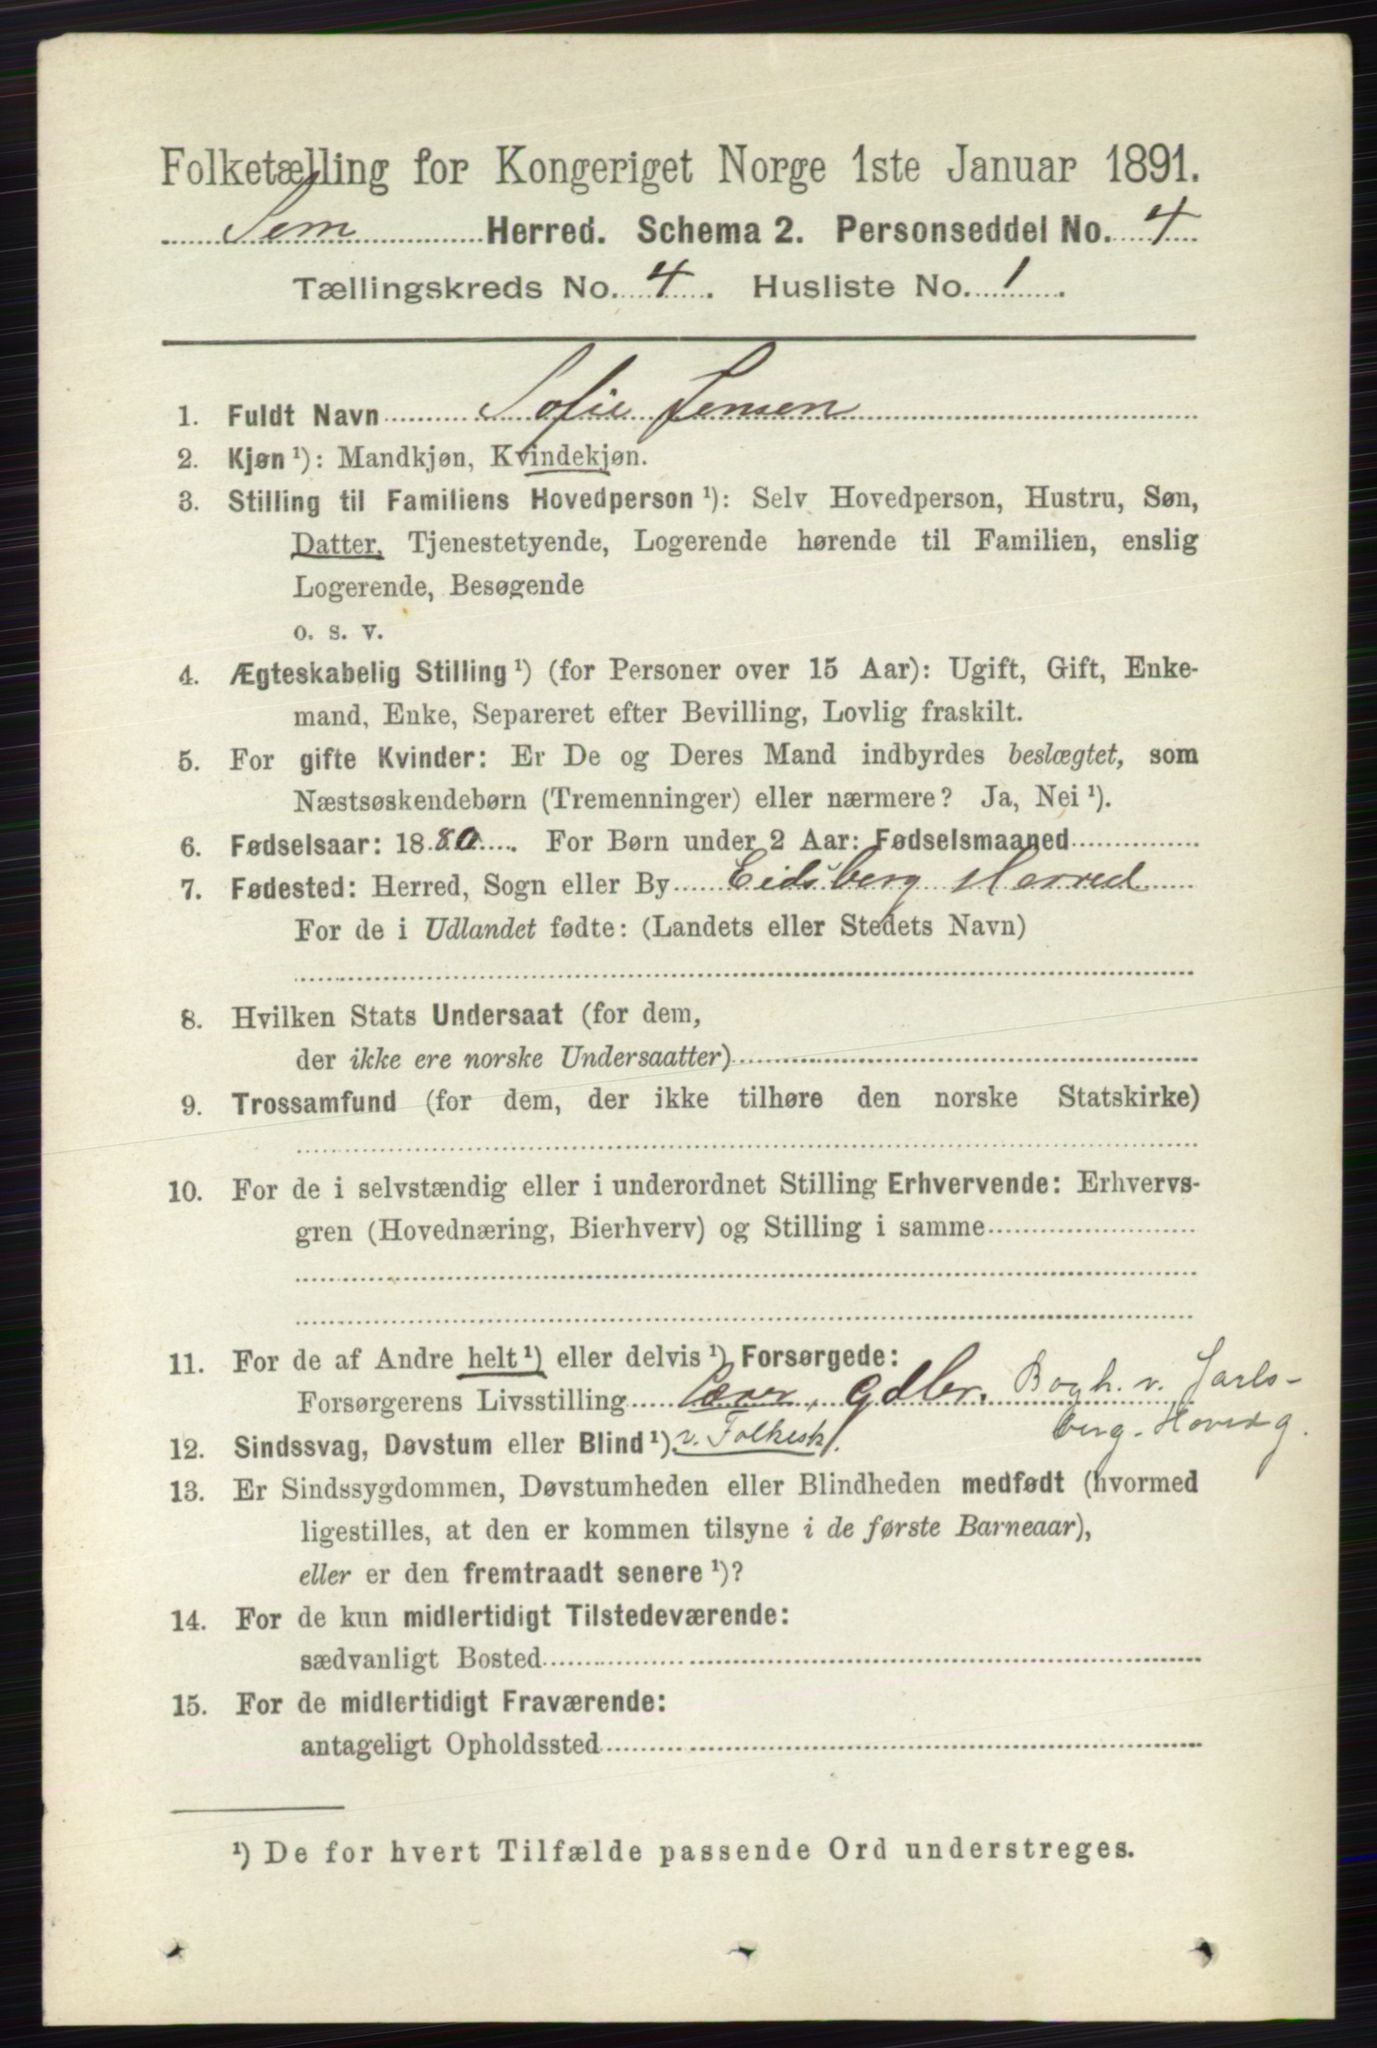 Folketælling for Kongeriget Norge 1ste Januar 1891.
Sem Herred. Schema 2. Personseddel No. 4
Tællingskreds No. 4. Husliste No. 1.
1. Fuldt Navn Sofie Jensen
2. Kjøn ¹): Mandkjøn, Kvindekjøn.
3. Stilling til Familiens Hovedperson ¹): Selv Hovedperson, Hustru, Søn,
Datter, Tjenestetyende, Logerende hørende til Familien, enslig
Logerende, Besøgende
o. s. v.
4. Ægteskabelig Stilling ¹) (for Personer over 15 Aar): Ugift, Gift, Enke-
mand, Enke, Separeret efter Bevilling, Lovlig fraskilt.
5. For gifte Kvinder: Er De og Deres Mand indbyrdes beslægtet, som
Næstsøskendebørn (Tremenninger) eller nærmere? Ja, Nei ¹).
6. Fødselsaar: 1880. For Børn under 2 Aar: Fødselsmaaned
7. Fødested: Herred, Sogn eller By Eidsberg Herred
For de i Udlandet fødte: (Landets eller Stedets Navn)
8. Hvilken Stats Undersaat (for dem,
der ikke ere norske Undersaatter)
9. Trossamfund (for dem, der ikke tilhøre den norske Statskirke)
10. For de i selvstændig eller i underordnet Stilling Erhvervende: Erhvervs-
gren (Hovednæring, Bierhverv) og Stilling i samme
11. For de af Andre helt ¹) eller delvis ¹) Forsørgede:
Forsørgerens Livsstilling Lærer, Gdbr. Bogh. v. Jarls-
berg-Hovedg.
12. Sindssvag, Døvstum eller Blind ¹) v. Folkesk.
13. Er Sindssygdommen, Døvstumheden eller Blindheden medfødt (hvormed
ligestilles, at den er kommen tilsyne i de første Barneaar),
eller er den fremtraadt senere ¹)?
14. For de kun midlertidigt Tilstedeværende:
sædvanligt Bosted
15. For de midlertidigt Fraværende:
antageligt Opholdssted
¹) De for hvert Tilfælde passende Ord understreges.